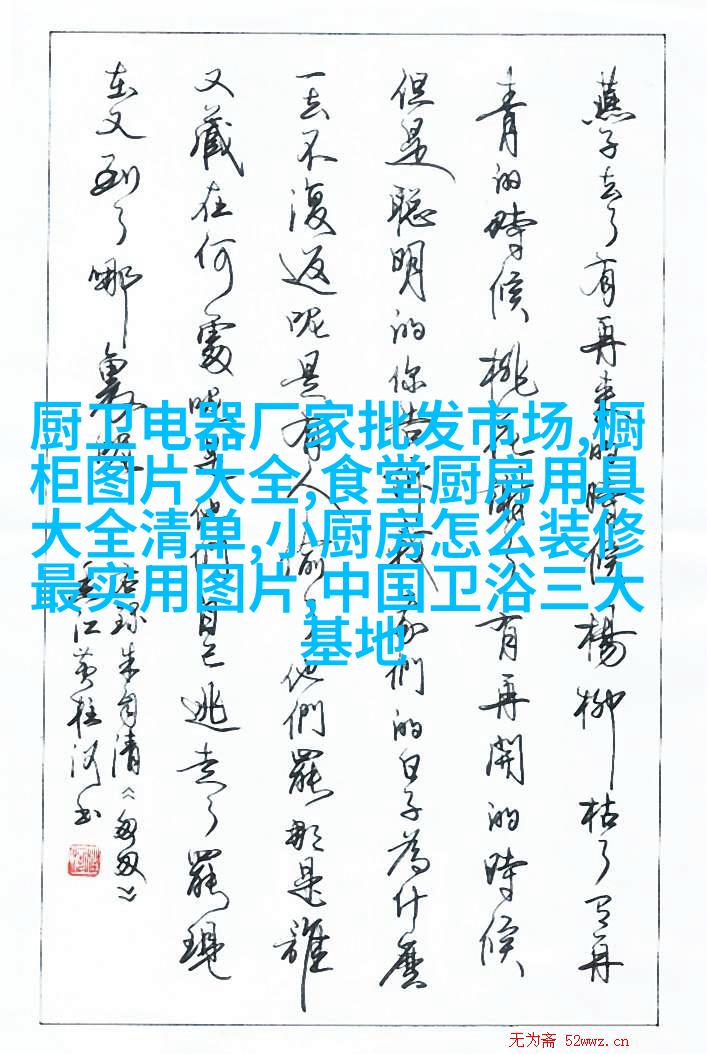 燕子去了有再來的時候楊柳枯了有再
青的時候桃花謝了有再開的時候
但是聰明的你告訴我我們的日子為什麼
一去不復返呢是有人偷了他們罷那是誰
又藏在何處呢是他們自己逃走了罷現
在又到了哪裏呢
朱自清《匆匆》
江黄桂河书
厨卫电器厂家批发市场,橱
柜图片大全,食堂厨房用具
大全清单,小厨房怎么装修
最实用图片,中国卫浴三大
基地
无为斋 52wwz.cn